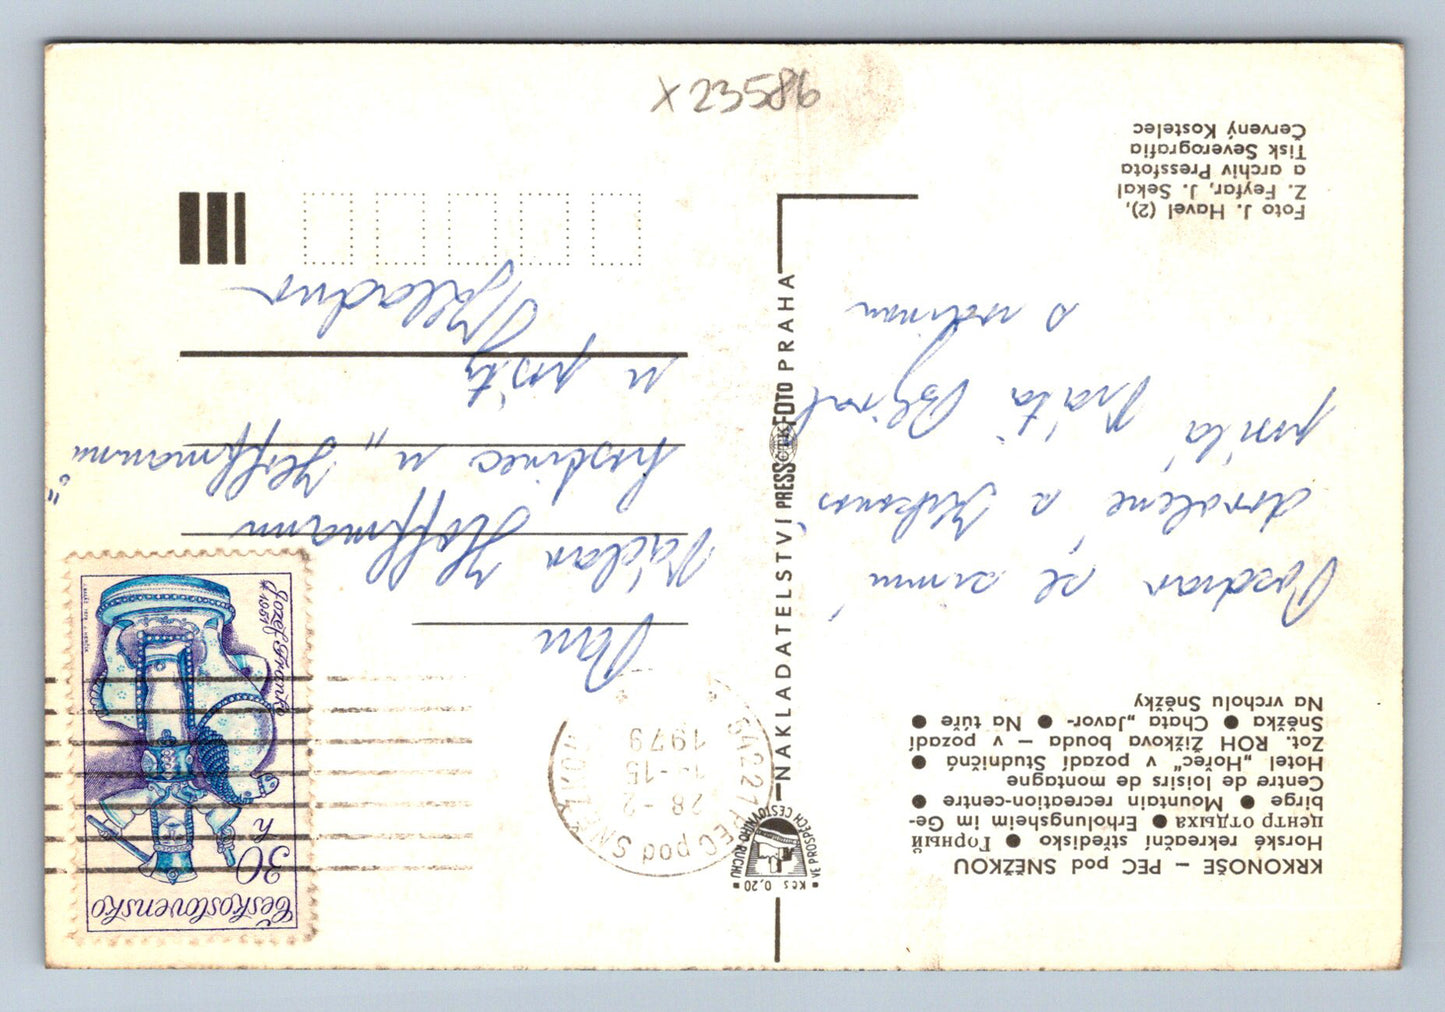 X 23586
KRKONOŠE – PEC pod SNĚŽKOU
Horské rekreační středisko ● Горный
центр отдыха ● Erholungsheim im Ge-
birge ● Mountain recreation-centre ●
Centre de loisirs de montagne
Hotel „Hořec“ v pozadí Studničná ●
Zot. ROH Žižkova bouda – v pozadí
Sněžka ● Chata „Javor“ ● Na túře ●
Na vrcholu Sněžky
Pozdrav ze zimní
dovolené a Krkonoš
posílá Vráťa
s rodinou
Foto J. Havel (2),
Z. Feyfar, J. Sekal
a archiv Pressfota
Tisk Severografia
Červený Kostelec
Kčs 0,20
VE PROSPĚCH CESTOVNÍHO RUCHU
NAKLADATELSTVÍ PRESSFOTO PRAHA
Československo
30 h
Jozef Franko
* 1951
54221 PEC pod SNĚŽKOU
28.-2
-15
1979
Pan
Václav Hoffmann
hostinec u „Hoffmannů“
u pošty
Kladno